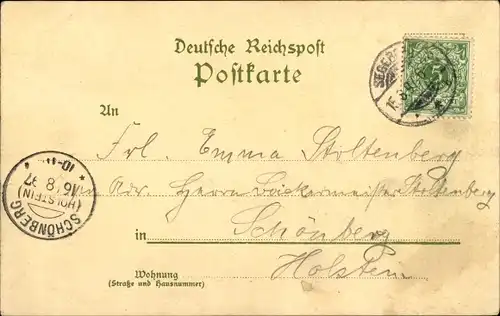 Deutsche Reichspost
Postkarte
An
Frl. Emma Stoltenberg
Adr. Herrn Bäckermeister Stoltenberg
in Schönberg
Holstein
Wohnung
(Straße und Hausnummer)
SCHÖNBERG
(HOLSTEIN)
16 8 97
10-11
5